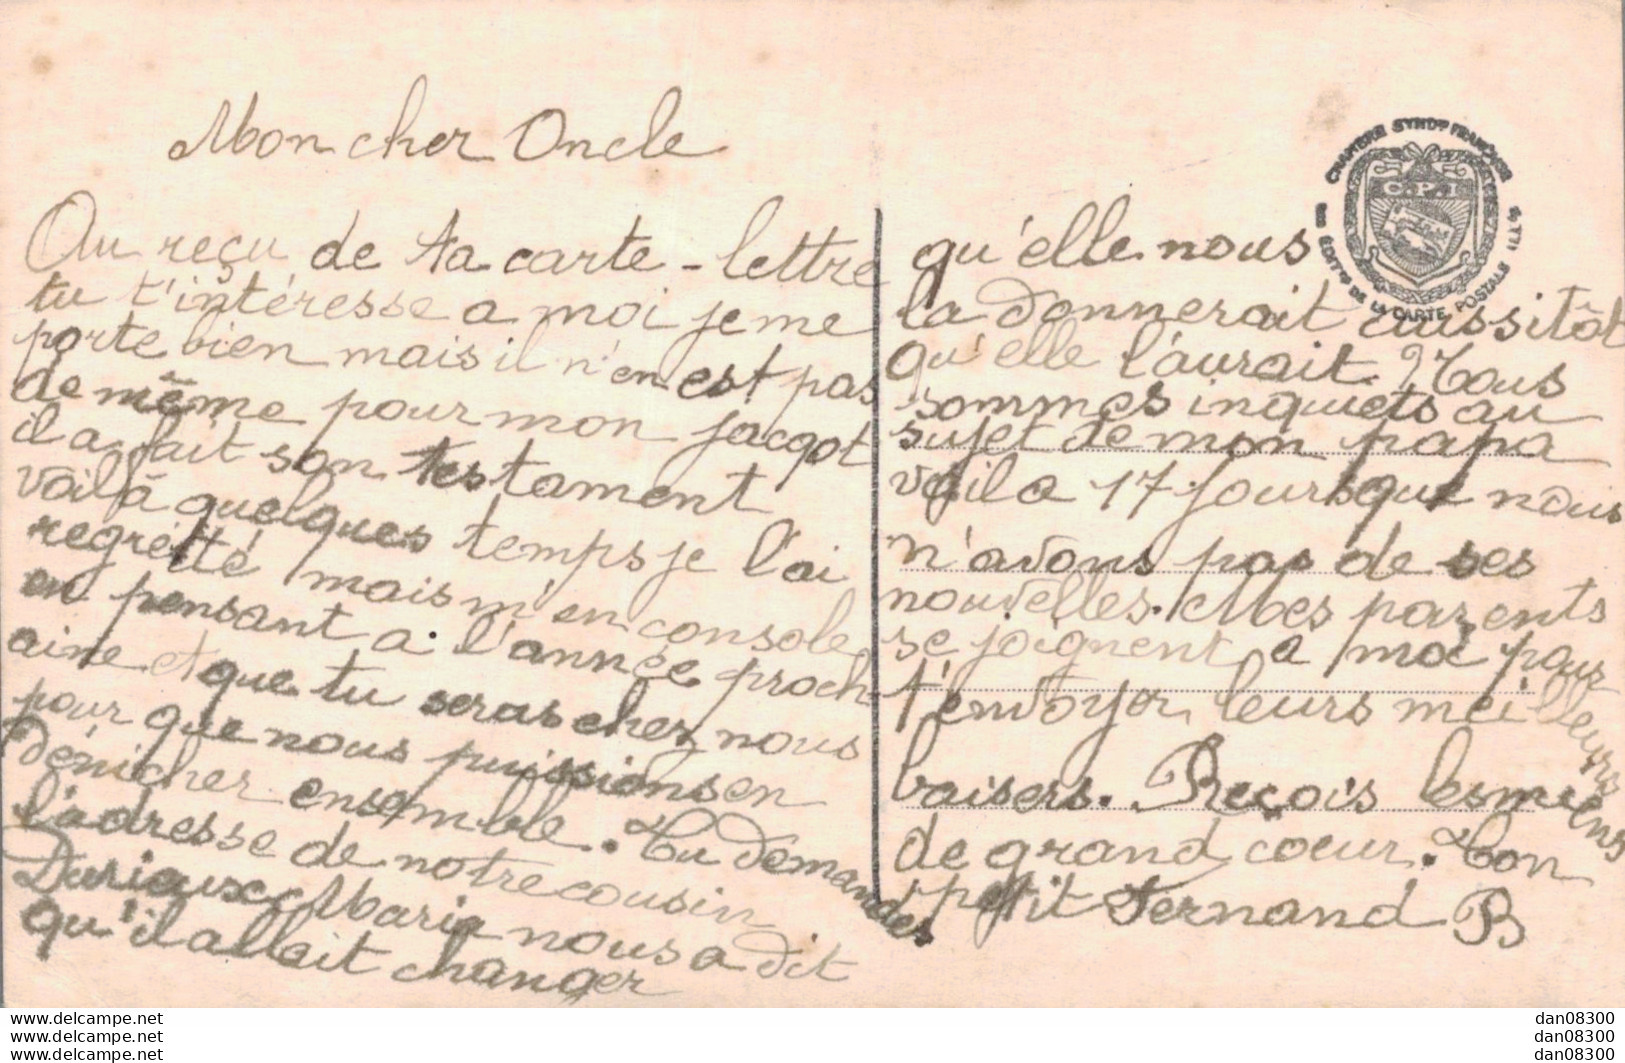 Mon cher Oncle
Au reçu de ta carte-lettre
tu t'intéresse a moi je me
porte bien mais il n'en est pas
de même pour mon jacqot
il a fait son testament
voilà quelques temps je l'ai
regretté mais m'en console
en pensant a l'année proch-
aine et que tu seras chez nous
pour que nous puissions en
dénicher ensemble. Tu demandes
l'adresse de notre cousin
Dariaux Maria nous a dit
qu'il allait changer
qu'elle nous
la donnerait aussitôt
qu'elle l'aurait. Nous
sommes inquiets au
sujet de mon papa
voila 17 jours que nous
n'avons pas de ses
nouvelles. Mes parents
se joignent a moi pour
t'envoyer leurs meilleurs
baisers. Reçois les miens
de grand coeur. Ton
petit Fernand B
CHAMBRE SYNDle FRANÇAISE
C.P.I
DES ÉDITrs DE LA CARTE POSTALE ILLTée
www.delcampe.net
www.delcampe.net
www.delcampe.net
dan08300
dan08300
dan08300